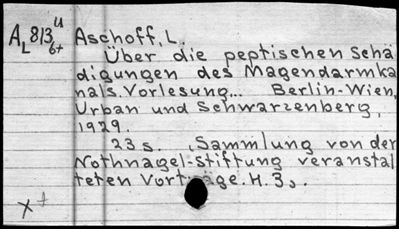 AL813 u 6+ Aschoff, L.
Über die peptischen Schä
digungen des Magendarmka
nals. Vorlesung... Berlin-Wien,
Urban und Schwarzenberg,
1929.
23 s. (Sammlung von der
Nothnagel-Stiftung veranstal
teten Vorträge. H. 3).
x +